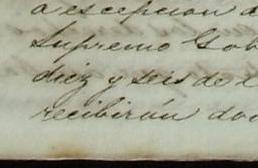 a escepcion d
Supremo Gob
diez y seis de d
recibirán do